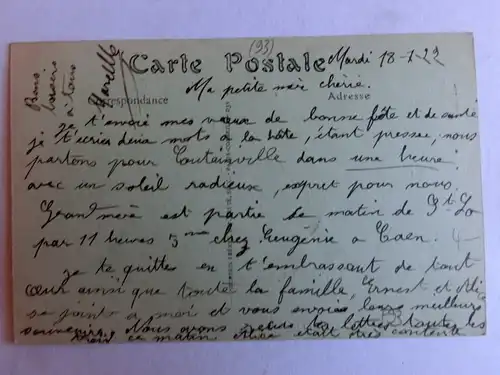 (93)
Carte Postale
Mardi 18-7-22
Correspondance
Adresse
Ma petite mère chérie.
je t'envoie mes vœux de bonne fête et de santé
je t'écris deux mots à la hâte, étant pressée, nous
partons pour Coutainville dans une heure
avec un soleil radieux, exprèt pour nous.
Grand'mère est partie ce matin de St Lo
par 11 heures 5 chez Eugénie à Caen. 4-
je te quitte en t'embrassant de tout
cœur ainsi que toute la famille, Ernest et
se joint à moi et vous envoie leurs meilleurs
souvenirs. Nous avons les lettres toutes les
ce matin, était très contente
Bons
baisers
à tous